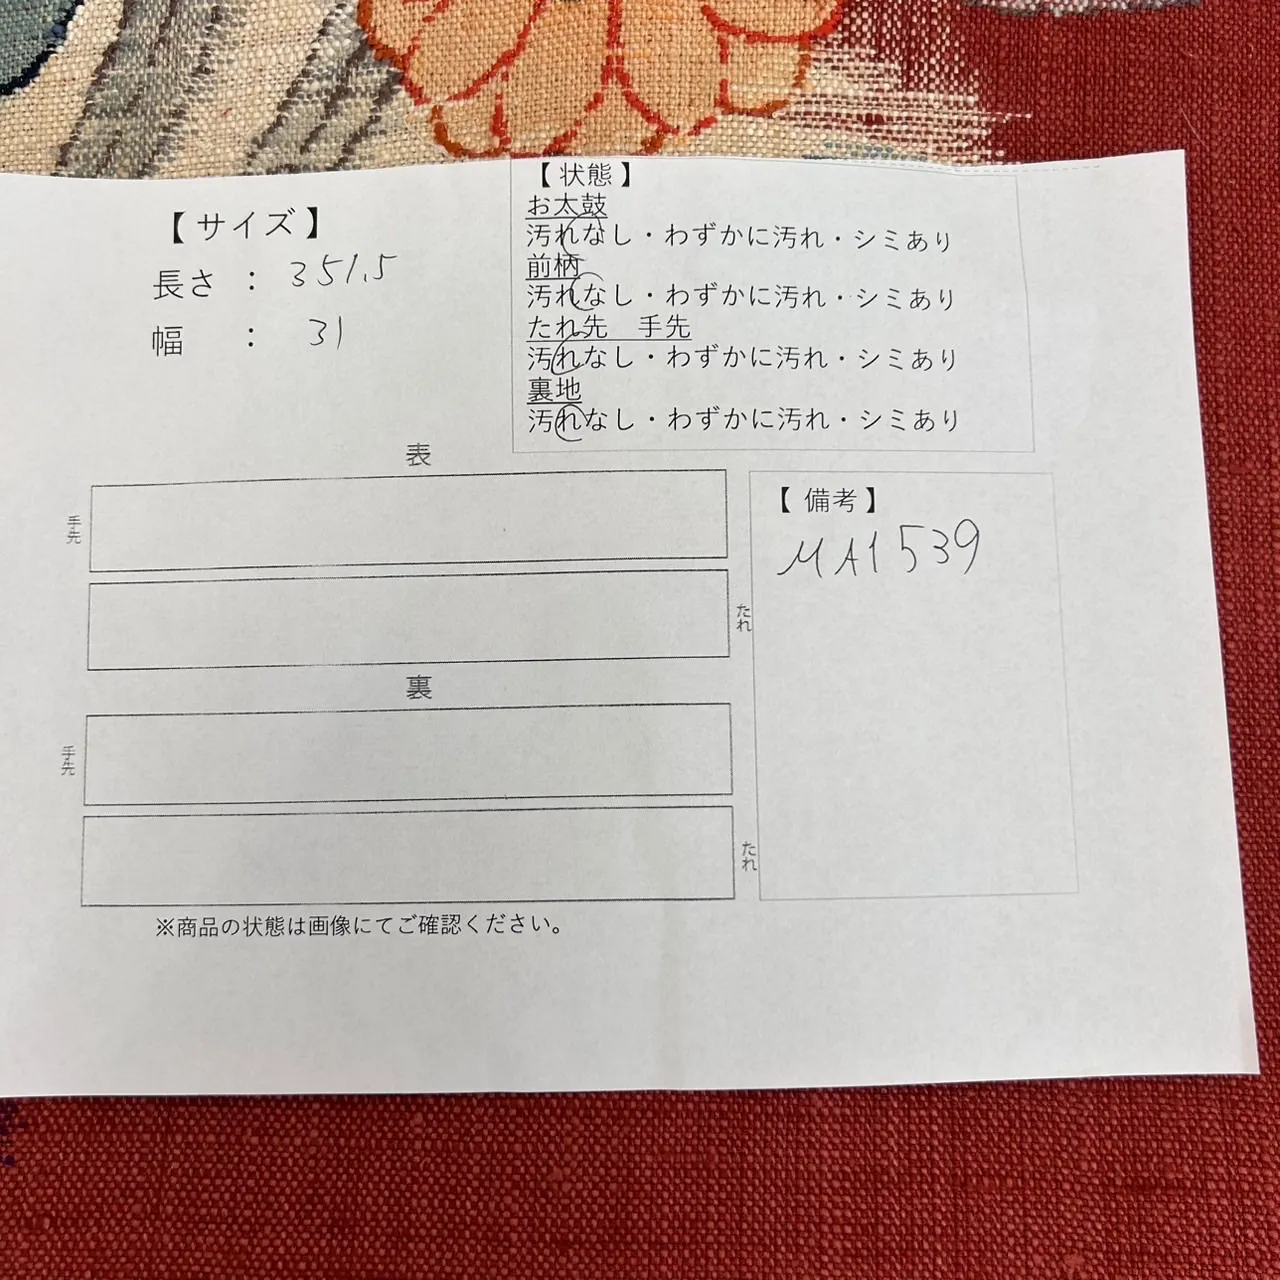 【サイズ】
長さ : 351.5
幅 : 31
【状態】
お太鼓
汚れなし・わずかに汚れ・シミあり
前柄
汚れなし・わずかに汚れ・シミあり
たれ先 手先
汚れなし・わずかに汚れ・シミあり
裏地
汚れなし・わずかに汚れ・シミあり
表
手先
たれ
裏
手先
たれ
【備考】
MA1539
※商品の状態は画像にてご確認ください。